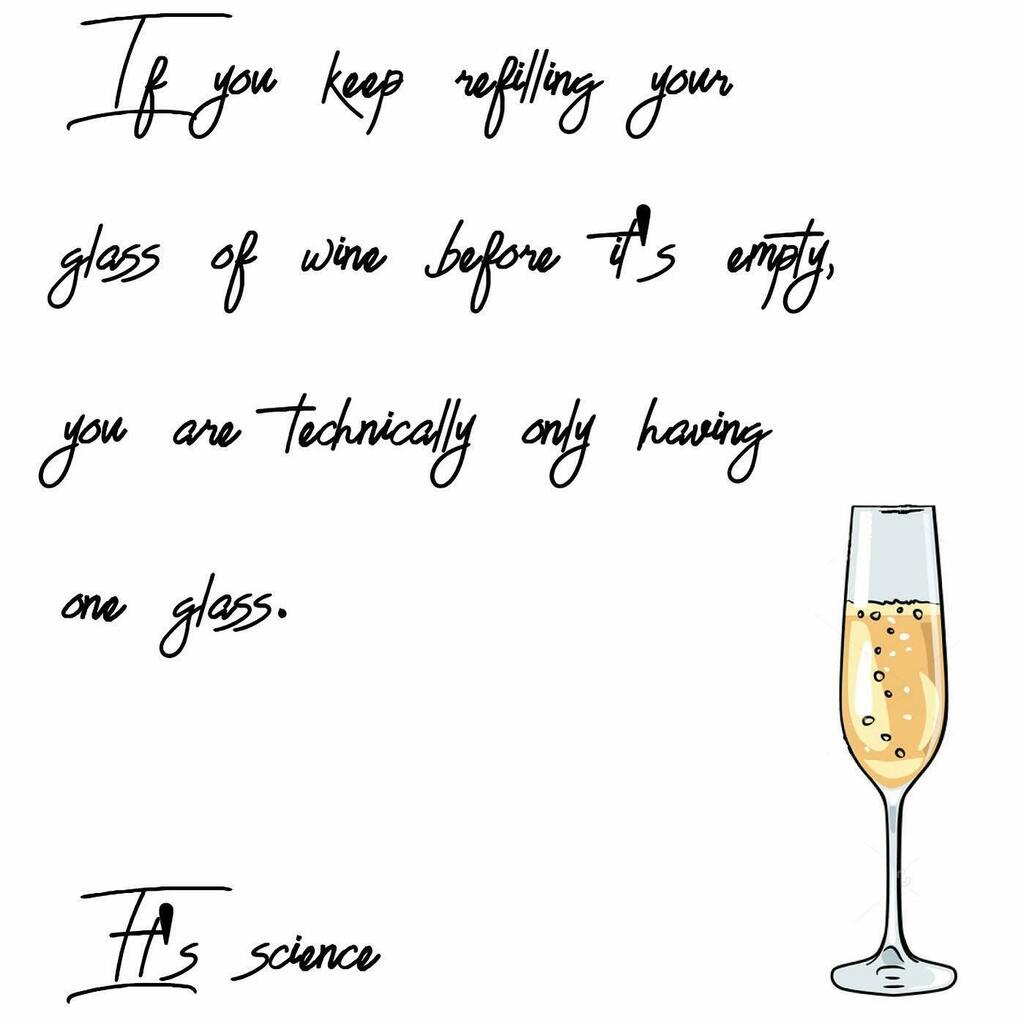 If you keep refilling your
glass of wine before it's empty,
you are technically only having
one glass.
It's science